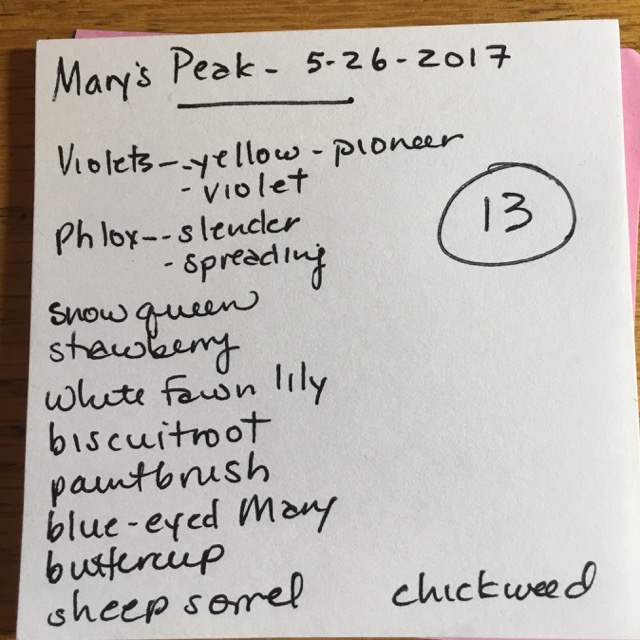 Mary's Peak - 5-26-2017
Violets--yellow - pioneer
- violet
13
Phlox-- slender
- spreading
snow queen
strawberry
white fawn lily
biscuitroot
paintbrush
blue-eyed Mary
buttercup
sheep sorrel chickweed